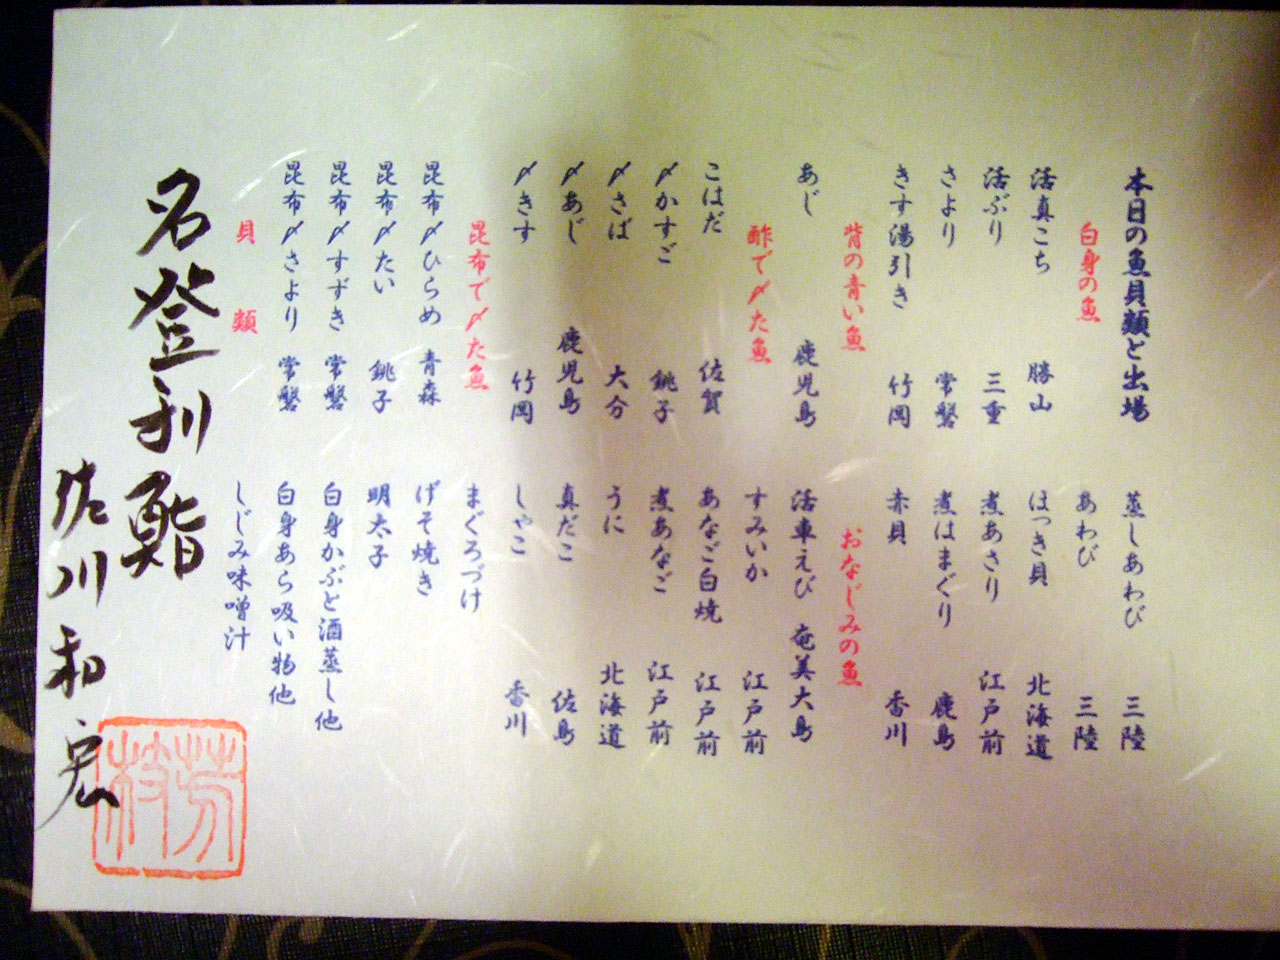 本日の魚貝類と出場
白身の魚
活真こち 勝山
活ぶり 三重
さより 常磐
きす湯引き 竹岡
背の青い魚
あじ 鹿児島
酢で〆た魚
こはだ 佐賀
〆かすご 銚子
〆さば 大分
〆あじ 鹿児島
〆きす 竹岡
昆布で〆た魚
昆布〆ひらめ 青森
昆布〆たい 銚子
昆布〆すずき 常磐
昆布〆さより 常磐
貝類
蒸しあわび 三陸
あわび 三陸
ほっき貝 北海道
煮あさり 江戸前
煮はまぐり 鹿島
赤貝 香川
おなじみの魚
活車えび 奄美大島
すみいか 江戸前
あなご白焼 江戸前
煮あなご 江戸前
うに 北海道
真だこ 佐島
しゃこ 香川
まぐろづけ
げそ焼き
明太子
白身かぶと酒蒸し他
白身あら吸い物他
しじみ味噌汁
名登利鮨
佐川和宏
芳枝